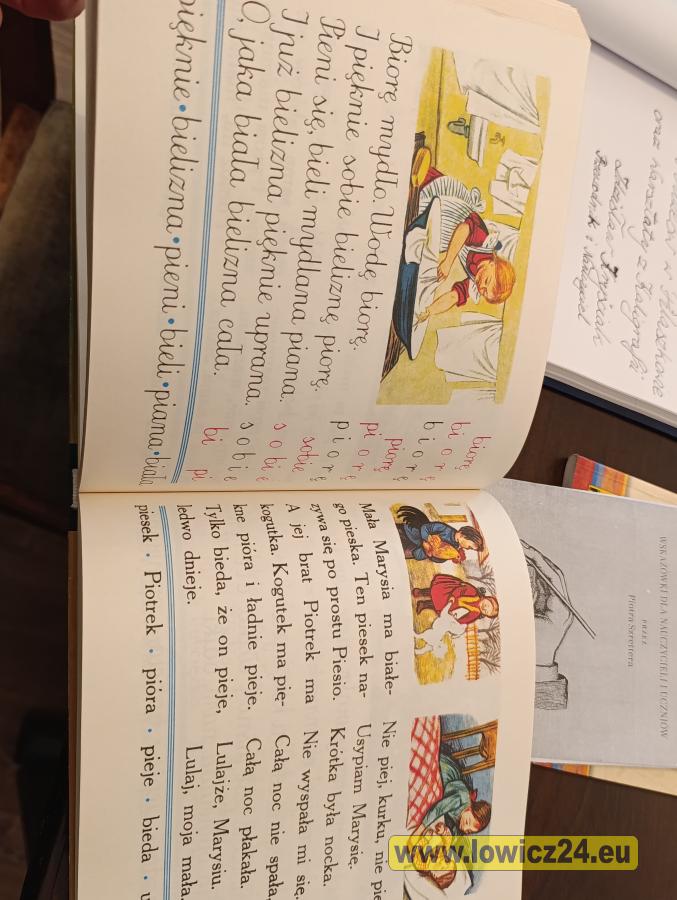 Biorę mydło. Wodę biorę.
I pięknie sobie bieliznę piorę.
Pieni się, bieli mydlana piana.
I już bielizna pięknie uprana.
O, jaka biała bielizna cała.
biorę
bi o r ę
b i o r ę
piorę
pi o r ę
p i o r ę
sobie
s o b i ę
s o b i e
bi pi
pięknie • bielizna • pieni • bieli • piana • biała
Mała Marysia ma białe-
go pieska. Ten piesek na-
zywa się po prostu Piesio.
A jej brat Piotrek ma
kogutka. Kogutek ma pię-
kne pióra i ładnie pieje.
Tylko bieda, że on pieje,
ledwo dnieje.
Nie piej, kurku, nie pie
Usypiam Marysię.
Krótka była nocka.
Nie wyspała mi się.
Całą noc nie spała,
Całą noc płakała.
Lulajże, Marysiu.
Lulaj, moja mała.
piesek • Piotrek • pióra • pieje • bieda • u
oraz warsztaty z Kaligrafii
WSKAZÓWKI DLA NAUCZYCIELI I UCZNIÓW
PRZEZ
Piotra Szrettera
www.lowicz24.eu